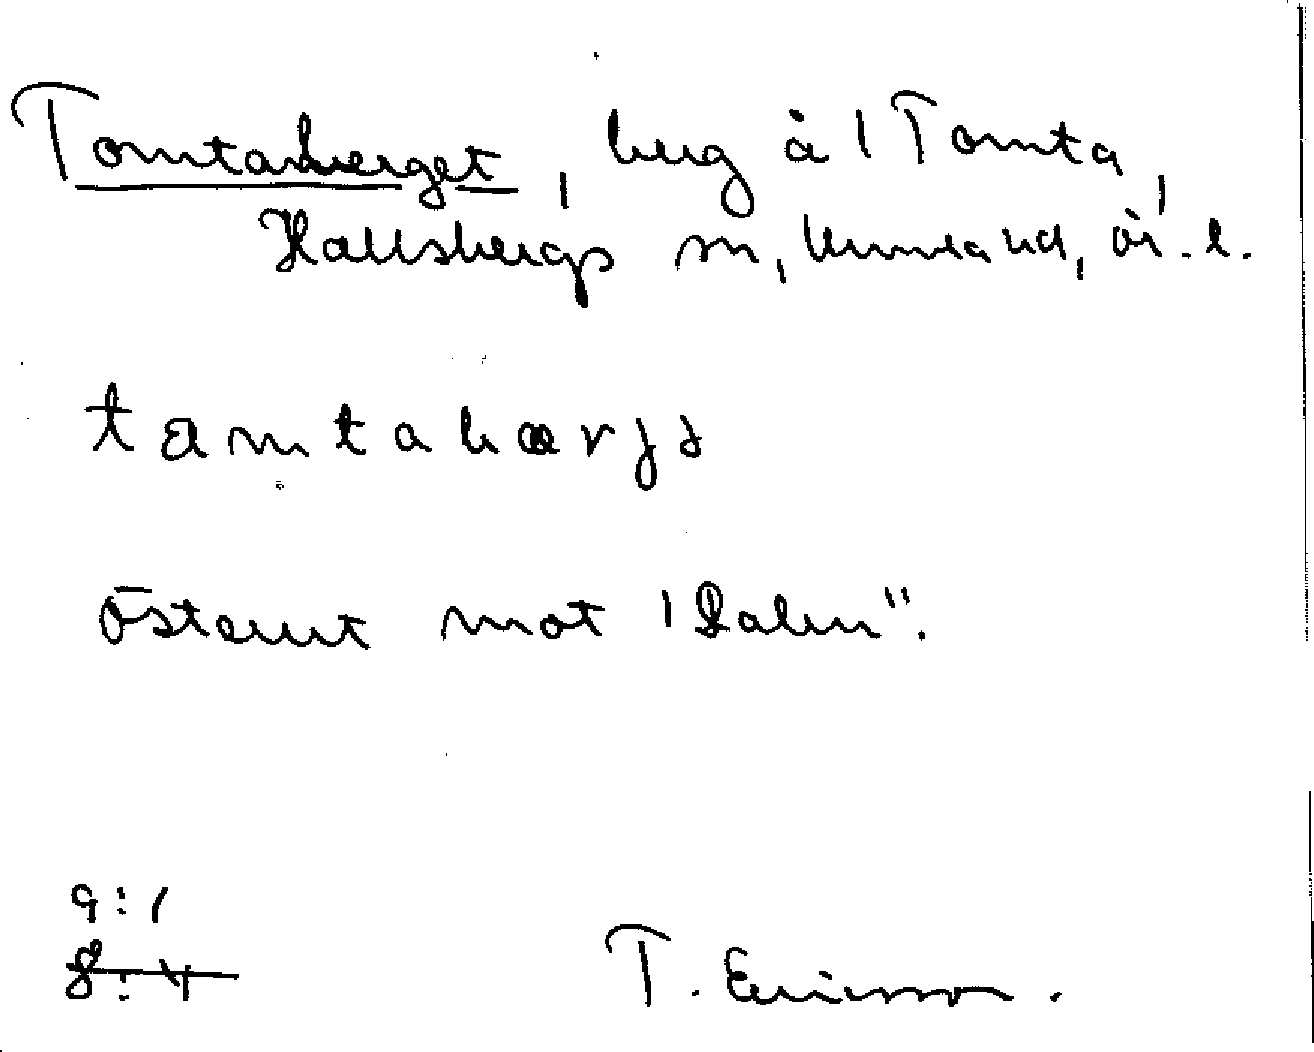 Tomtaberget, berg å 1 Tomta,
Hallsbergs sn, Kumla hd, Ör. l.
tamtabærjə
österut mot "Dalen".
9:1
8:4
T. Ericsson.